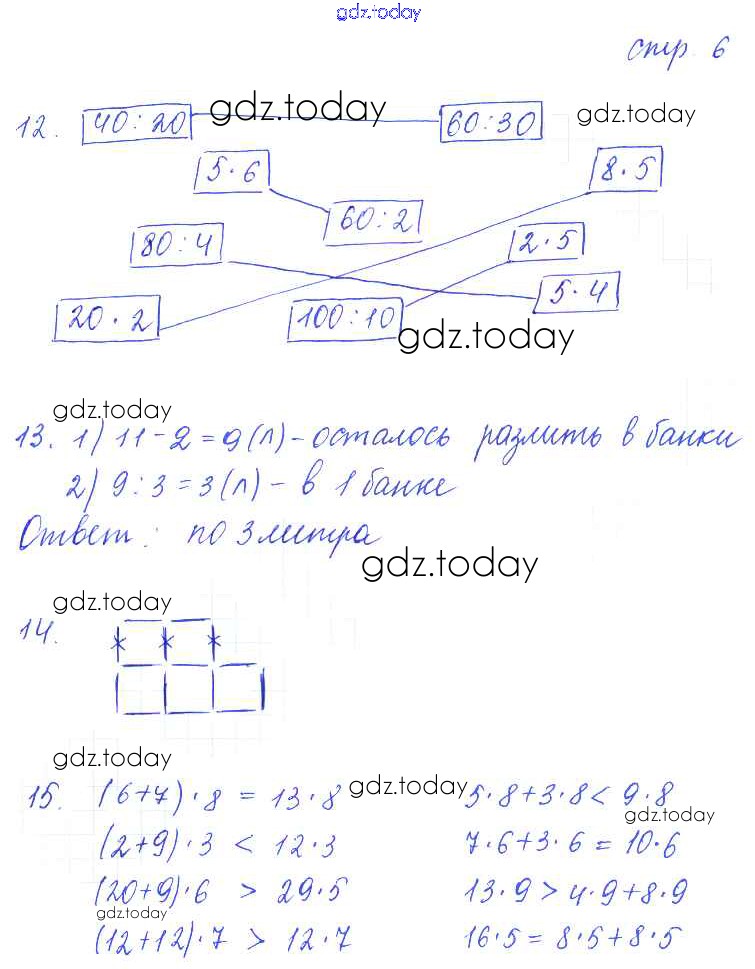 gdz.today
стр. 6
12. 40:20 gdz.today 60:30 gdz.today
5·6 8·5
60:2
80:4 2·5
5·4
20·2 100:10
gdz.today
gdz.today
13. 1) 11-2=9(л)-осталось разлить в банки
2) 9:3=3(л)- в 1 банке
Ответ: по 3 литра
gdz.today
gdz.today
14.
gdz.today
15. (6+7)·8 = 13·8 gdz.today 5·8+3·8 < 9·8
gdz.today
(2+9)·3 < 12·3 7·6+3·6 = 10·6
(20+9)·6 > 29·5 13·9 > 4·9+8·9
gdz.today
(12+12)·7 > 12·7 16·5 = 8·5+8·5